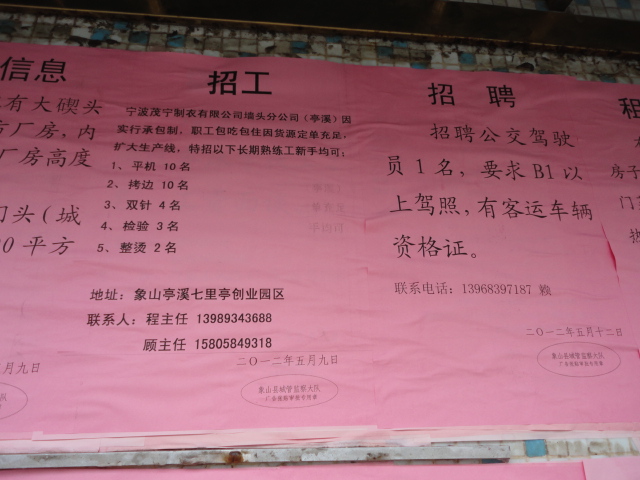 信息
有大碶头
厂房,内
厂房高度
门头(城
00平方
月九日
招工
宁波茂宁制衣有限公司墙头分公司(亭溪)因
实行承包制,职工包吃包住因货源定单充足,
扩大生产线,特招以下长期熟练工新手均可:
1、平机 10名
2、拷边 10名
3、双针 4名
4、检验 3名
5、整烫 2名
地址:象山亭溪七里亭创业园区
联系人:程主任 13989343688
顾主任 15805849318
二〇一二年五月九日
象山县城管监察大队
招 聘
招聘公交驾驶
员1名,要求B1以
上驾照,有客运车辆
资格证。
联系电话:13968397187 赖
二〇一二年五月十二日
象山县城管监察大队
租
房子
门